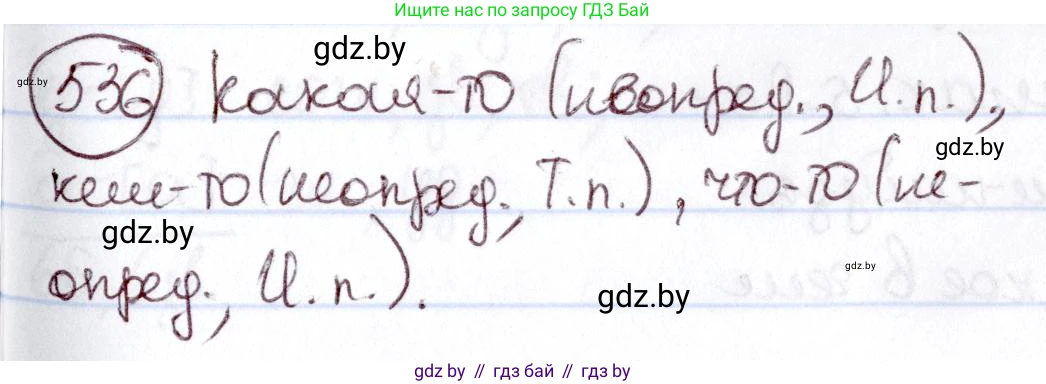 Ищите нас по запросу ГДЗ Бай
gdz.by
gdz.by
536 Какая-то (неопред., И.п.),
gdz.by
кем-то (неопред., Т.п.), что-то (не-
gdz.by
gdz.by
опред., И.п.).
gdz.by
gdz.by // гдз бай // гдз by